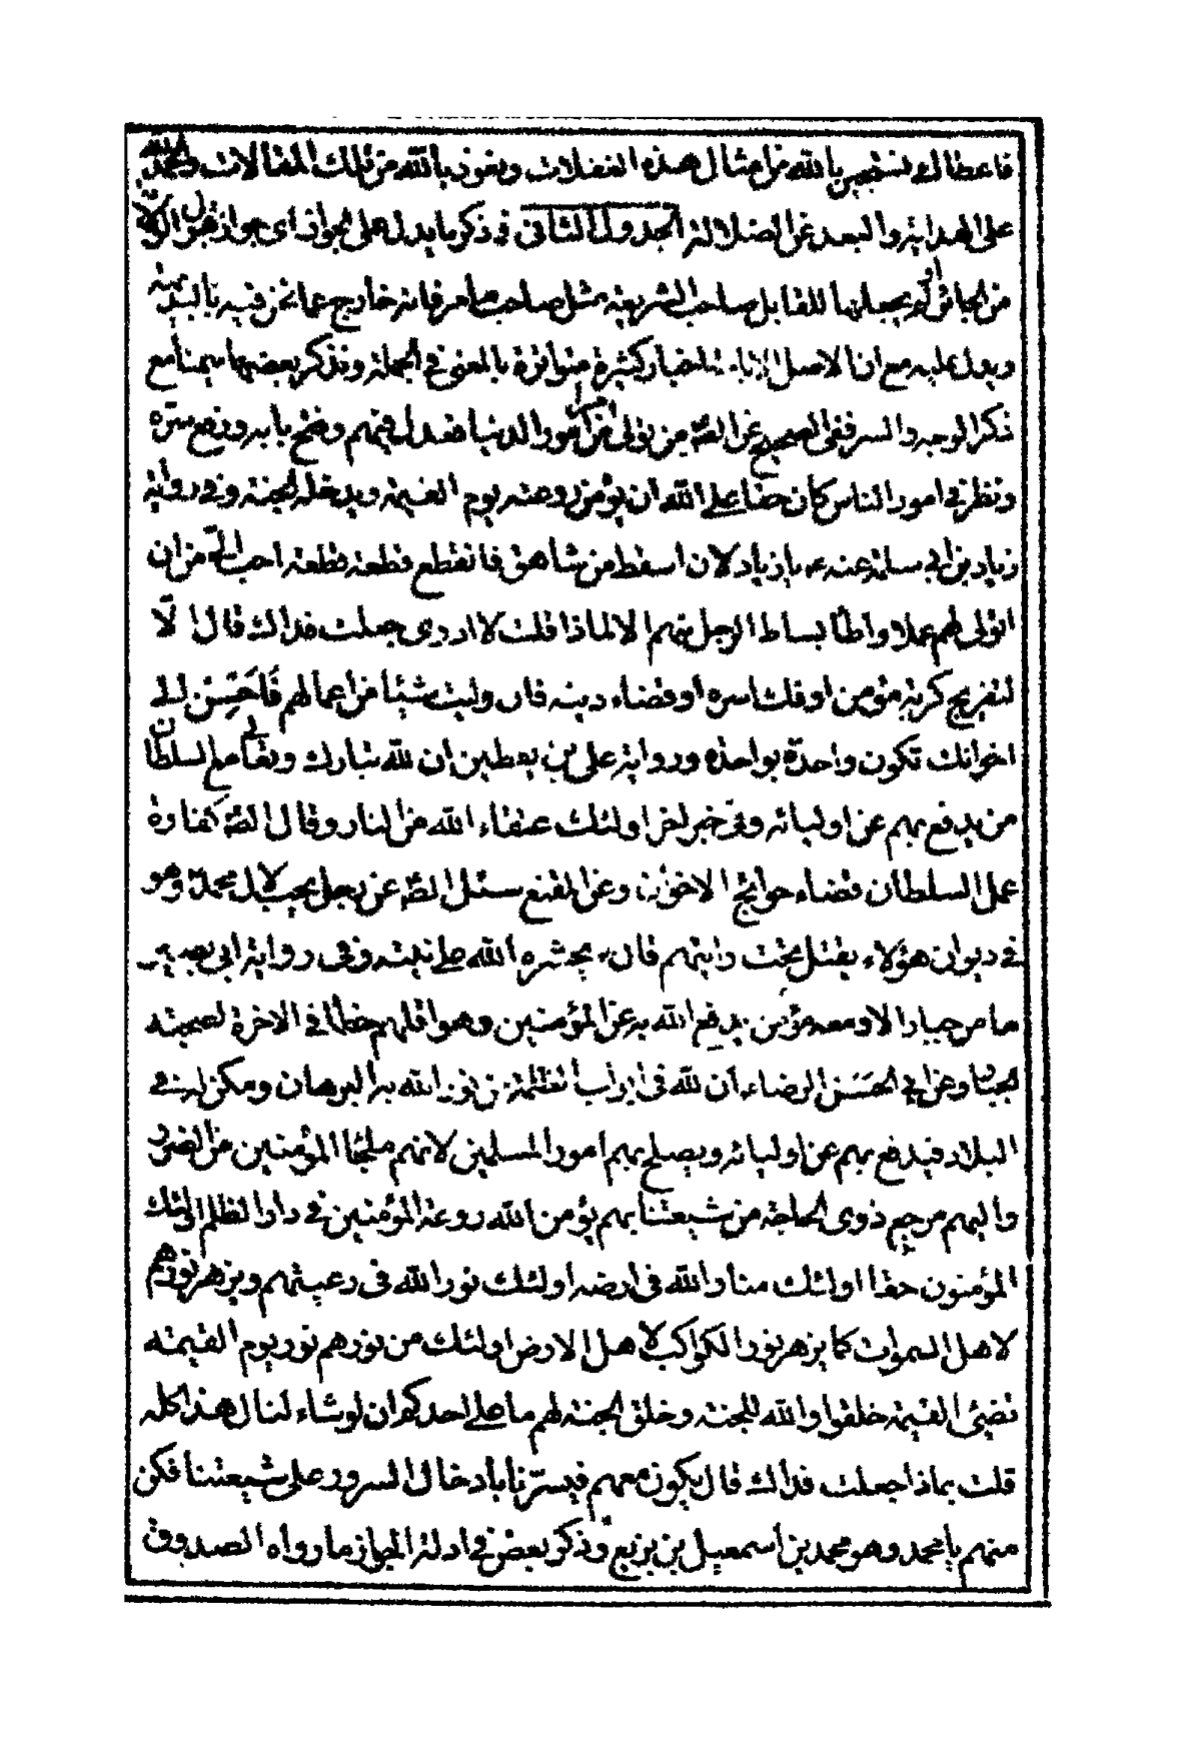 فاعطالى نستجير بالله من امثال هذه الغفلات ونعوذ بالله من تلك المقالات والحمد لله
على الهداية والبعد عن الضلالة الجدول الثانى فى ذكر ما يدل على الجواز اى جواز قبول الولاية
من الجائر لو بجعلها للقابل صاحب الشريعة مثل صاحب مصر فانه خارج عما نحن فيه بالبديهة
ويدل عليه مع ان الاصل الاباحة اخبار كثيرة متواترة بالمعنى فى الجملة ونذكر بعضها سيمنا مع
ذكر الوجه والسر ففى الصحيح عن الصّ من تولى امرا من امور الدنيا فعدل فيهم وفتح بابه ورفع ستره
ونظر فى امور الناس كان حقا على الله ان يؤمن روعته يوم القيمة ويدخله الجنة وفى رواية
زياد بن ابى سلمة عنه ع يا زياد لان اسقط من شاهق فانقطع قطعة قطعة احب الىّ من ان
اتولى لهم عملا واطأ بساط الرجل منهم الا لماذا قلت لا ادرى جعلت فداك قال الّا
لتفريج كربة مؤمن او فك اسره او قضاء دينه فان وليت شيئا من اعمالهم فَاَحسِن الى
اخوانك تكون واحدة بواحدة ورواية على بن يقطين ان لله تبارك وتعالى مع السلطان
من يدفع بهم عن اوليائه وفى خبر اخر اولئك عتقاء الله من النار وقال الصّ كفارة
عمل السلطان قضاء حوائج الاخوان وعن المقنع سئل الصّ عن رجل يحب لال محمد وهو
فى ديوان هؤلاء يقتل تحت رايتهم قال ع يحشره الله على نيته وفى رواية ابى بصير
ما من جبار الا ومعه مؤمن يدفع الله به عن المؤمنين وهو اقلهم حظا فى الاخرة لصحبته
الجبار وعن ابى الحسن الرضاء ان لله فى ابواب الظلمة من نور الله به البرهان ومكن له فى
البلاد فيدفع بهم عن اوليائه ويصلح بهم امور المسلمين لانهم ملجئا المؤمنين من الضرر
واليهم مرجع ذوى الحاجة من شيعتنا بهم يؤمن الله روعة المؤمنين فى دار الظلم اولئك
المؤمنون حقا اولئك منار الله فى ارضه اولئك نور الله فى رعيتهم ويزهر نورهم
لاهل السموات كما يزهر نور الكواكب لاهل الارض اولئك من نورهم نور يوم القيمة
تضيئ القيمة خلقوا والله للجنة وخلق الجنة لهم ما على احدكم ان لو شاء لنال هذا كله
قلت بماذا جعلت فداك قال يكون معهم فيسرّنا بادخال السرور على شيعتنا فكن
منهم يا محمد وهو محمد بن اسمعيل بن بزيع وذكر بعض فى ادلة الجواز ما رواه الصدوق